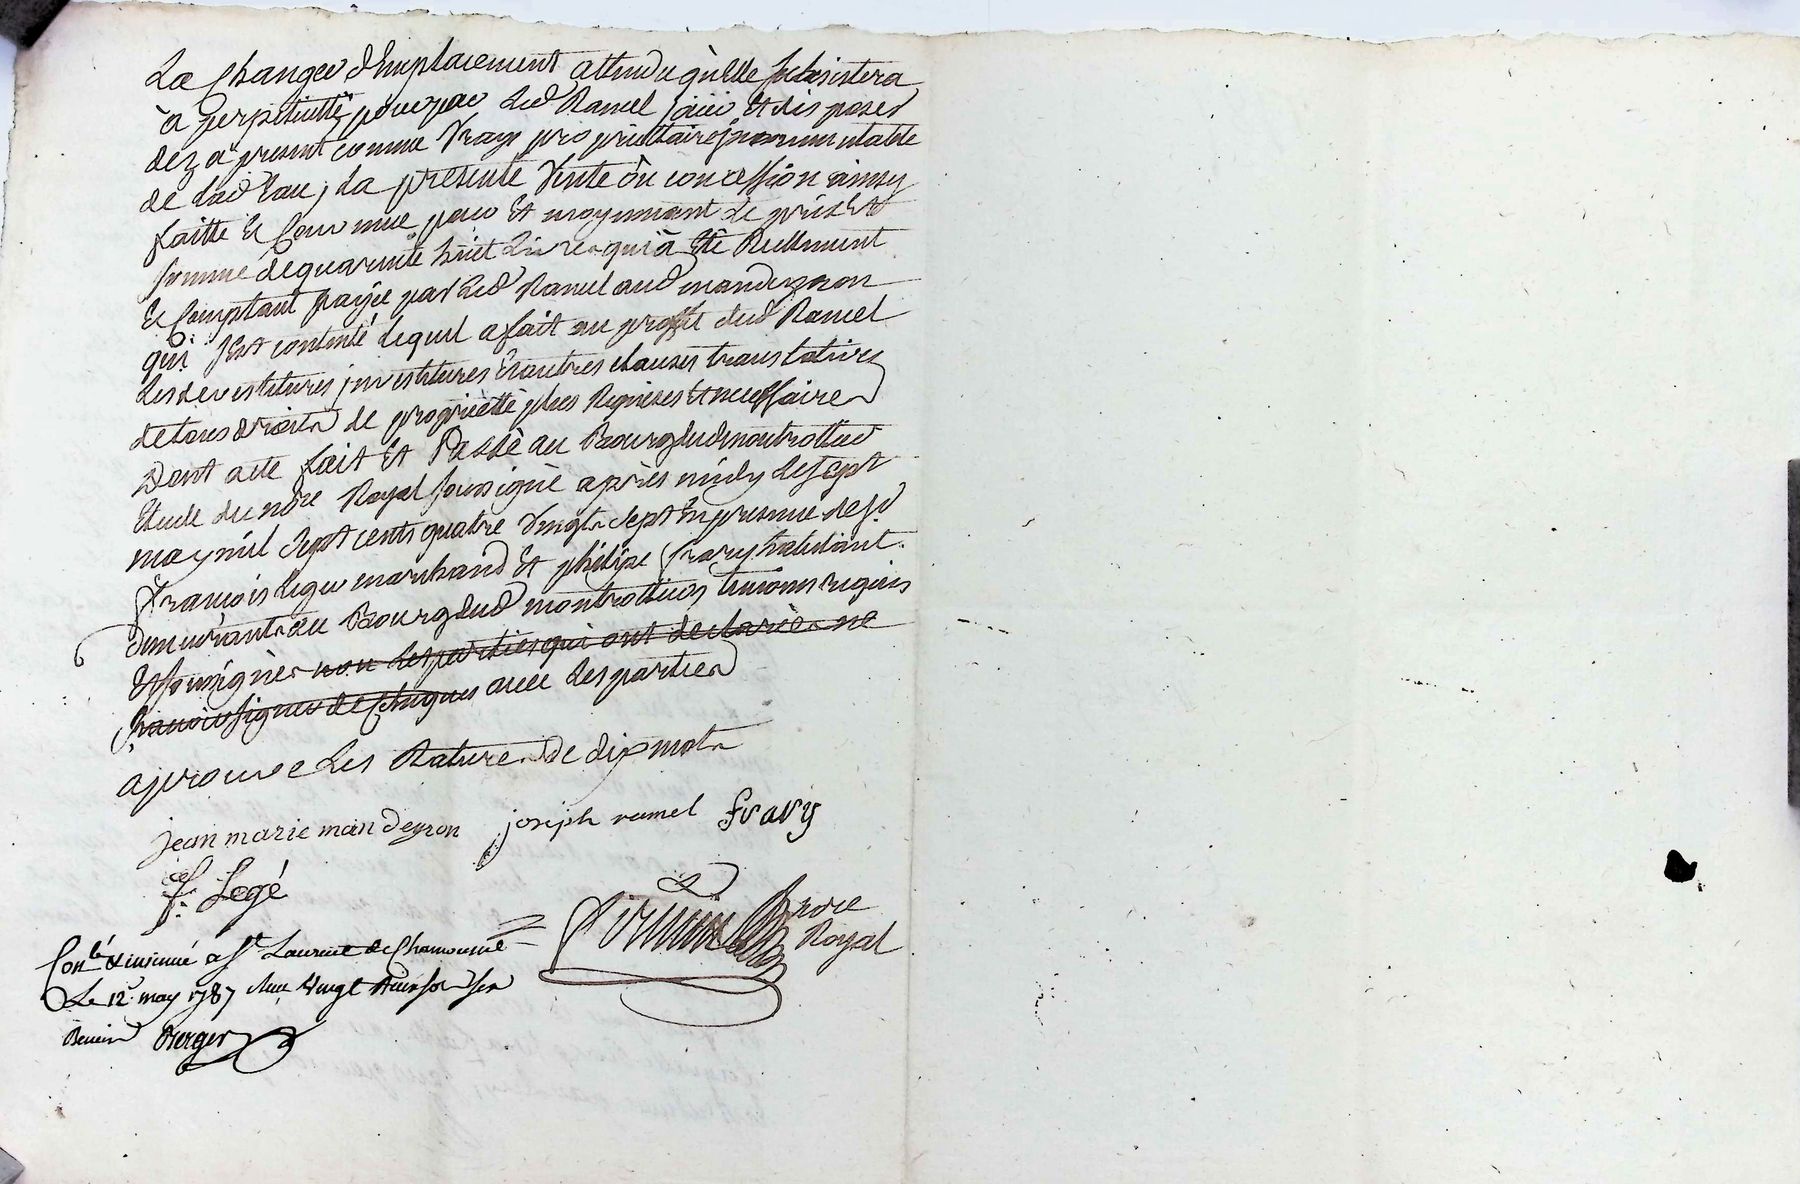 La Changer d'Emplacement attendu qu'Elle subsistera
à perpetuitté, pour par led Ramel jouir Et disposer
dez à present comme Vray propriettaire jncommutable
de lad Eau, la presente Vente ou concession ainsy
faitte Et Convenue pour Et moyennant le prix Et
somme de quarente huit Livres qui à Eté Reellement
Et Comptant payée par led Ramel aud mandeyron
qui s'En contenté lequel a fait au proffit dud Ramel
les devestitures jnvestitures Et autres clauses translatives
de tous droits de proprietté plus Requises Et necessaires
Dont acte fait Et Passé au Bourg dud montrottier
Etude du nore Royal soussigné après midy le sept
may mil sept cents quatre Vingts sept En presence de sr
françois legé marchand Et philipe fravy habitant
demeurants au Bourg dud montrottier temoins requis
Et soussignés non les parties qui ont declarées ne
sçavoir signer de Ce Enquis avec les parties
aprouve les Ratures de dix mots
jean marie mandeyron joseph ramel fravy
f. Legé
nore
Royal
Conlé & insinué a St Laurent de Chamousset
Le 12 may 1787 Reçu Vingt
Berger